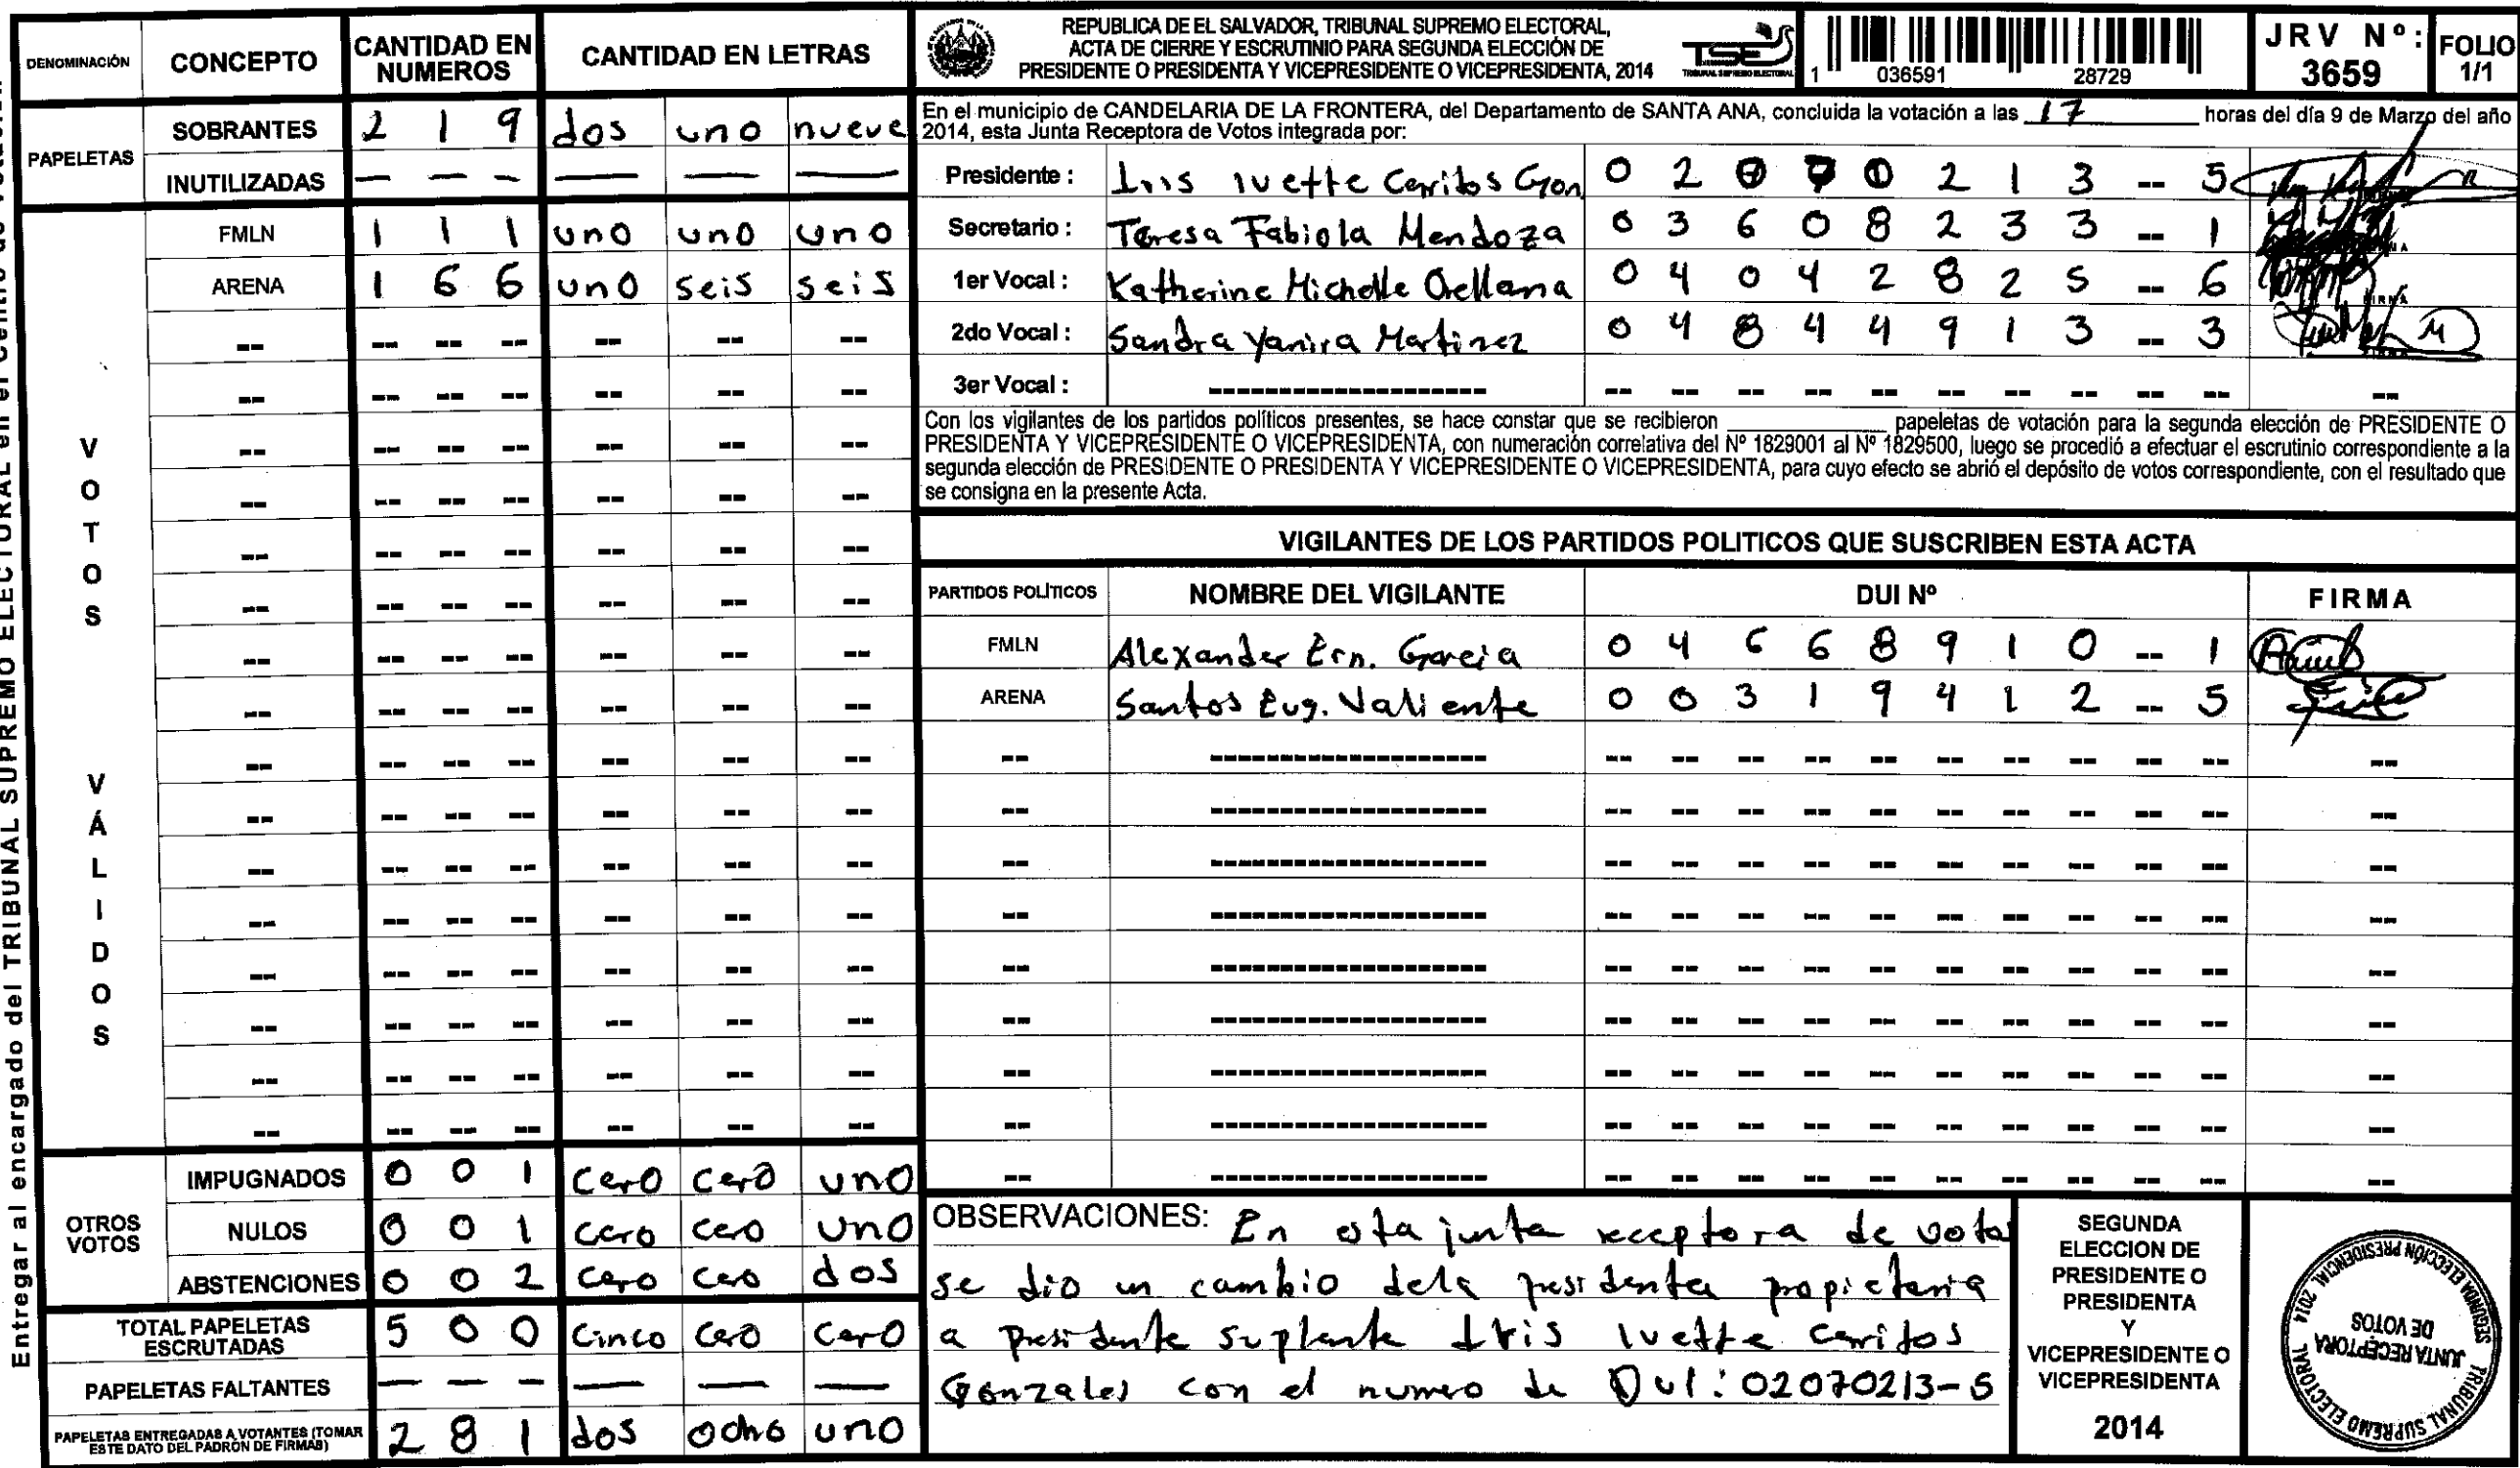 Entregar al encargado del TRIBUNAL SUPREMO ELECTORAL en el Centro de Votación
DENOMINACIÓN CONCEPTO CANTIDAD EN NUMEROS CANTIDAD EN LETRAS
PAPELETAS
SOBRANTES 2 1 9 dos uno nueve
INUTILIZADAS — — — — — —
VOTOS VÁLIDOS
FMLN 1 1 1 uno uno uno
ARENA 1 6 6 uno seis seis
OTROS VOTOS
IMPUGNADOS 0 0 1 cero cero uno
NULOS 0 0 1 cero cero uno
ABSTENCIONES 0 0 2 cero cero dos
TOTAL PAPELETAS ESCRUTADAS 5 0 0 cinco cero cero
PAPELETAS FALTANTES — — — — — —
PAPELETAS ENTREGADAS A VOTANTES (TOMAR ESTE DATO DEL PADRÓN DE FIRMAS) 2 8 1 dos ocho uno
REPUBLICA DE EL SALVADOR, TRIBUNAL SUPREMO ELECTORAL,
ACTA DE CIERRE Y ESCRUTINIO PARA SEGUNDA ELECCIÓN DE
PRESIDENTE O PRESIDENTA Y VICEPRESIDENTE O VICEPRESIDENTA, 2014
TSE
TRIBUNAL SUPREMO ELECTORAL
1 036591 28729
JRV Nº: 3659
FOLIO 1/1
En el municipio de CANDELARIA DE LA FRONTERA, del Departamento de SANTA ANA, concluida la votación a las 17 horas del día 9 de Marzo del año
2014, esta Junta Receptora de Votos integrada por:
Presidente : Iris Ivette Cerritos Gon 0 2 0 7 0 2 1 3 -- 5
Secretario : Teresa Fabiola Mendoza 0 3 6 0 8 2 3 3 -- 1
1er Vocal : Katherine Michelle Orellana 0 4 0 4 2 8 2 5 -- 6
2do Vocal : Sandra Yanira Martinez 0 4 8 4 4 9 1 3 -- 3
3er Vocal :
Con los vigilantes de los partidos políticos presentes, se hace constar que se recibieron ________ papeletas de votación para la segunda elección de PRESIDENTE O
PRESIDENTA Y VICEPRESIDENTE O VICEPRESIDENTA, con numeración correlativa del Nº 1829001 al Nº 1829500, luego se procedió a efectuar el escrutinio correspondiente a la
segunda elección de PRESIDENTE O PRESIDENTA Y VICEPRESIDENTE O VICEPRESIDENTA, para cuyo efecto se abrió el depósito de votos correspondiente, con el resultado que
se consigna en la presente Acta.
VIGILANTES DE LOS PARTIDOS POLITICOS QUE SUSCRIBEN ESTA ACTA
PARTIDOS POLÍTICOS NOMBRE DEL VIGILANTE DUI Nº FIRMA
FMLN Alexander Ern. Garcia 0 4 6 6 8 9 1 0 -- 1
ARENA Santos Eug. Valiente 0 0 3 1 9 4 1 2 -- 5
OBSERVACIONES: En esta junta receptora de votos
se dio un cambio dela presidenta propietaria
a presidente suplente Iris Ivette Cerritos
Gonzales con el numero de Dui: 02070213-5
SEGUNDA
ELECCION DE
PRESIDENTE O
PRESIDENTA
Y
VICEPRESIDENTE O
VICEPRESIDENTA
2014
SEGUNDA ELECCIÓN PRESIDENCIAL 2014
JUNTA RECEPTORA
DE VOTOS
TRIBUNAL SUPREMO ELECTORAL